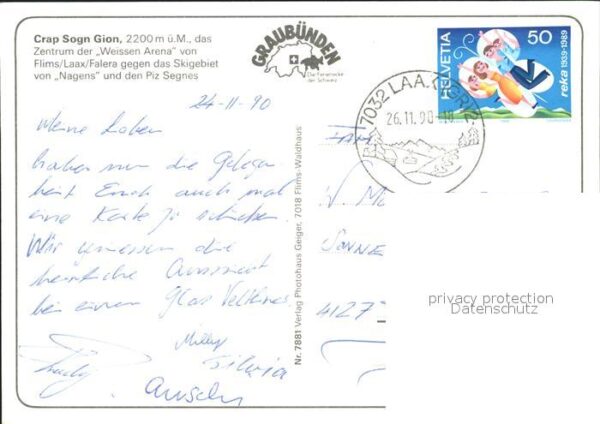 Crap Sogn Gion, 2200 m ü.M., das
Zentrum der „Weissen Arena" von
Flims/Laax/Falera gegen das Skigebiet
von „Nagens" und den Piz Segnes
GRAUBÜNDEN
Die Ferienecke
der Schweiz
HELVETIA
50
reka 1939-1989
7032 LAAX
26.11.90-18
24-11-90
Meine Lieben
haben nun die Gelegen
heit Euch auch mal
eine Karte zu schicken.
Wir geniessen die
herrliche Aussicht
bei einem Glas Veltliner.
Silvia
Nr. 7881 Verlag Photohaus Geiger, 7018 Flims-Waldhaus
FAM
SONNE
4127
privacy protection
Datenschutz